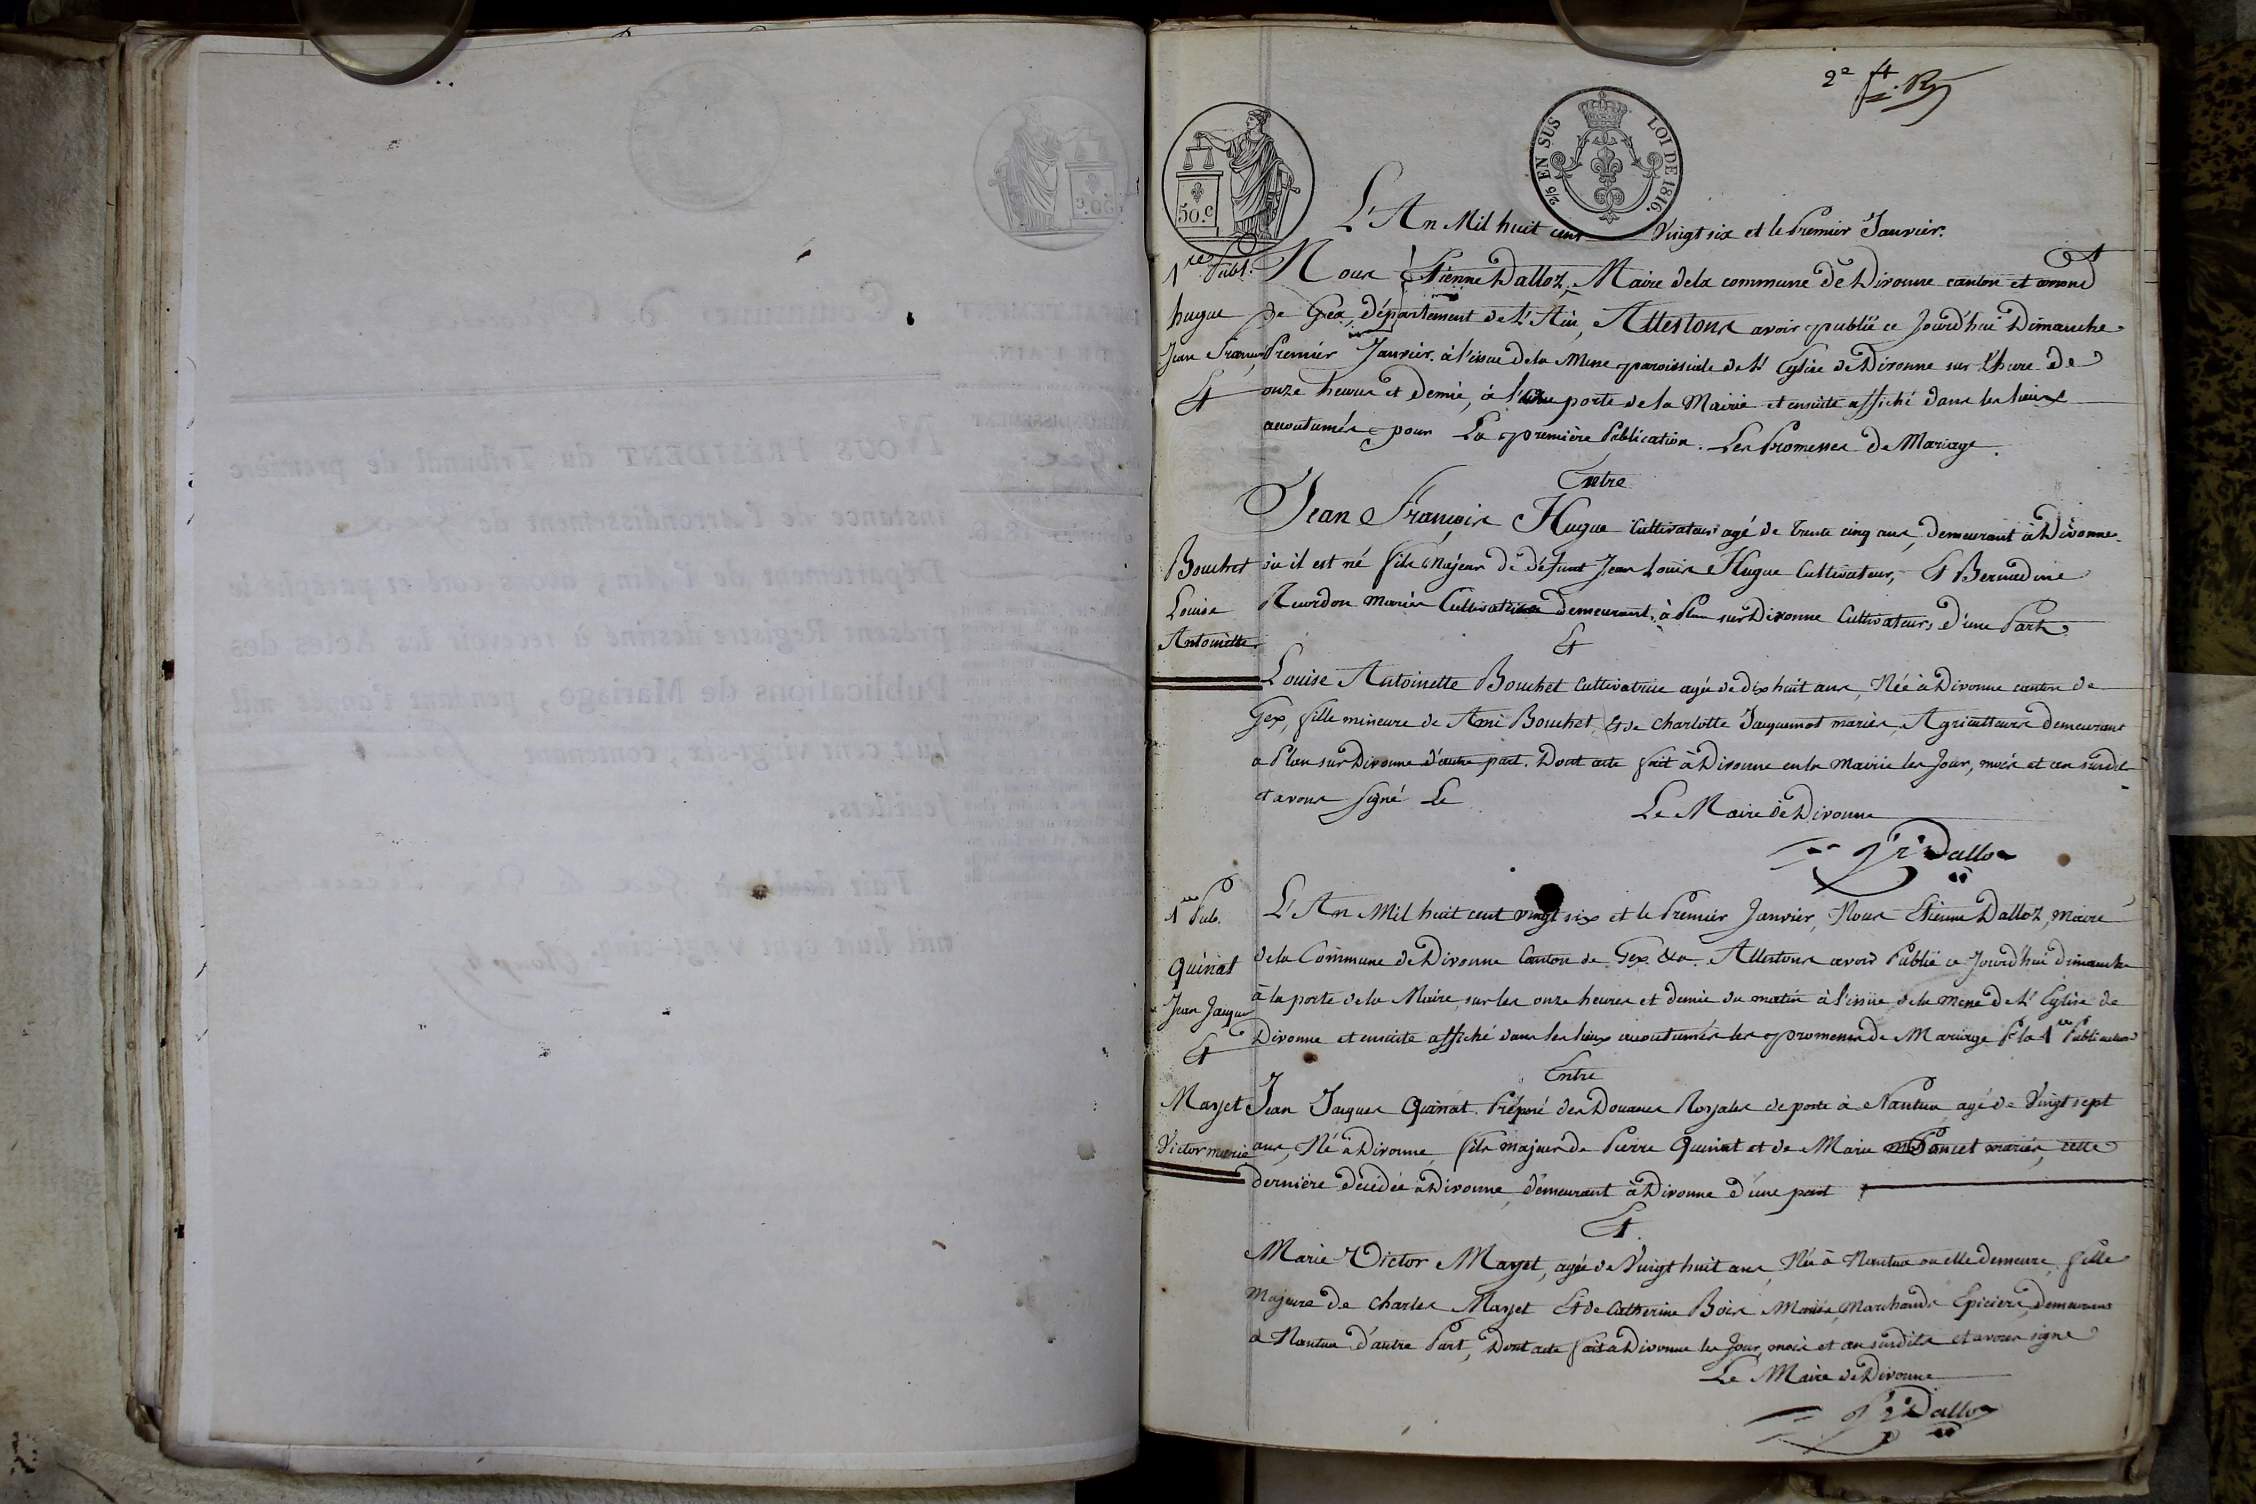 2e ft. Rg
2/5 EN SUS
LOI DE 1816.
50.c
L'An Mil huit cent Vingt six et le Premier Janvier.
1re Publ.
Nous Etienne Dalloz, Maire de la commune de Divonne canton et arrond
hugue
de Gex, département de l'Ain, Attestons avoir publié ce Jourd'hui Dimanche
Jean François
Premier Janvier. à l'issue de la Messe paroissiale de l'Eglise de Divonne sur l'heure de
Et
onze heures et Demie, à la porte de la Mairie et ensuite affiché dans les lieux
accoutumés pour La première Publication. Les Promesses de Mariage.
Entre
Jean François Hugue Cultivateur agé de trente cinq ans, demeurant à Divonne
Bouchet
où il est né fils Majeur de défunt Jean Louis Hugue Cultivateur, Et Bernardine
Louise
mariés demeurant, à Plan sur Divonne Cultivateurs, d'une Part
Antoinette
Et
Louise Antoinette Bouchet Cultivatrice agée de dix huit ans, Née à Divonne canton de
Gex, fille mineure de Ami Bouchet, Et de Charlotte Jacquemot mariés, Agriculteurs demeurant
à Plan sur Divonne d'autre part. Dont acte fait à Divonne en la Mairie les Jour, mois et an susdit
et avons signé Le
Le Maire de Divonne
Dalloz
1re Pub.
L'An Mil huit cent vingt six et le Premier Janvier, Nous Etienne Dalloz, Maire
Quinat
de la Commune de Divonne Canton de Gex &a. Attestons avoir Publié ce Jourd'hui dimanche
Jean Jacques
à la porte de la Maire, sur les onze heures et demie du matin à l'issüe de la messe de l'Eglise de
Et
Divonne et ensuite affiché dans les lieux accoutumés les promesses de Mariage Pr la 1re Publication
Entre
Mayet
Jean Jacques Quinat. Préposé des Douanes Royales de poste à Nantua agé de Vingt sept
Victor marie
ans, Né à Divonne, fils majeur de Pierre Quinat et de Marie Poncet mariés, cette
dernière décédée à Divonne, demeurant à Divonne d'une part
Et
Marie Victor Mayet, agée de Vingt huit ans, Née à Nantua ou elle demeure, fille
Majeure de Charles Mayet Et de Catherine Bois Mariés, Marchands Epiciers, demeurans
à Nantua d'autre Part, Dont acte fait à Divonne les Jour, mois et an susdits et avons signé
Le Maire de Divonne
Dalloz